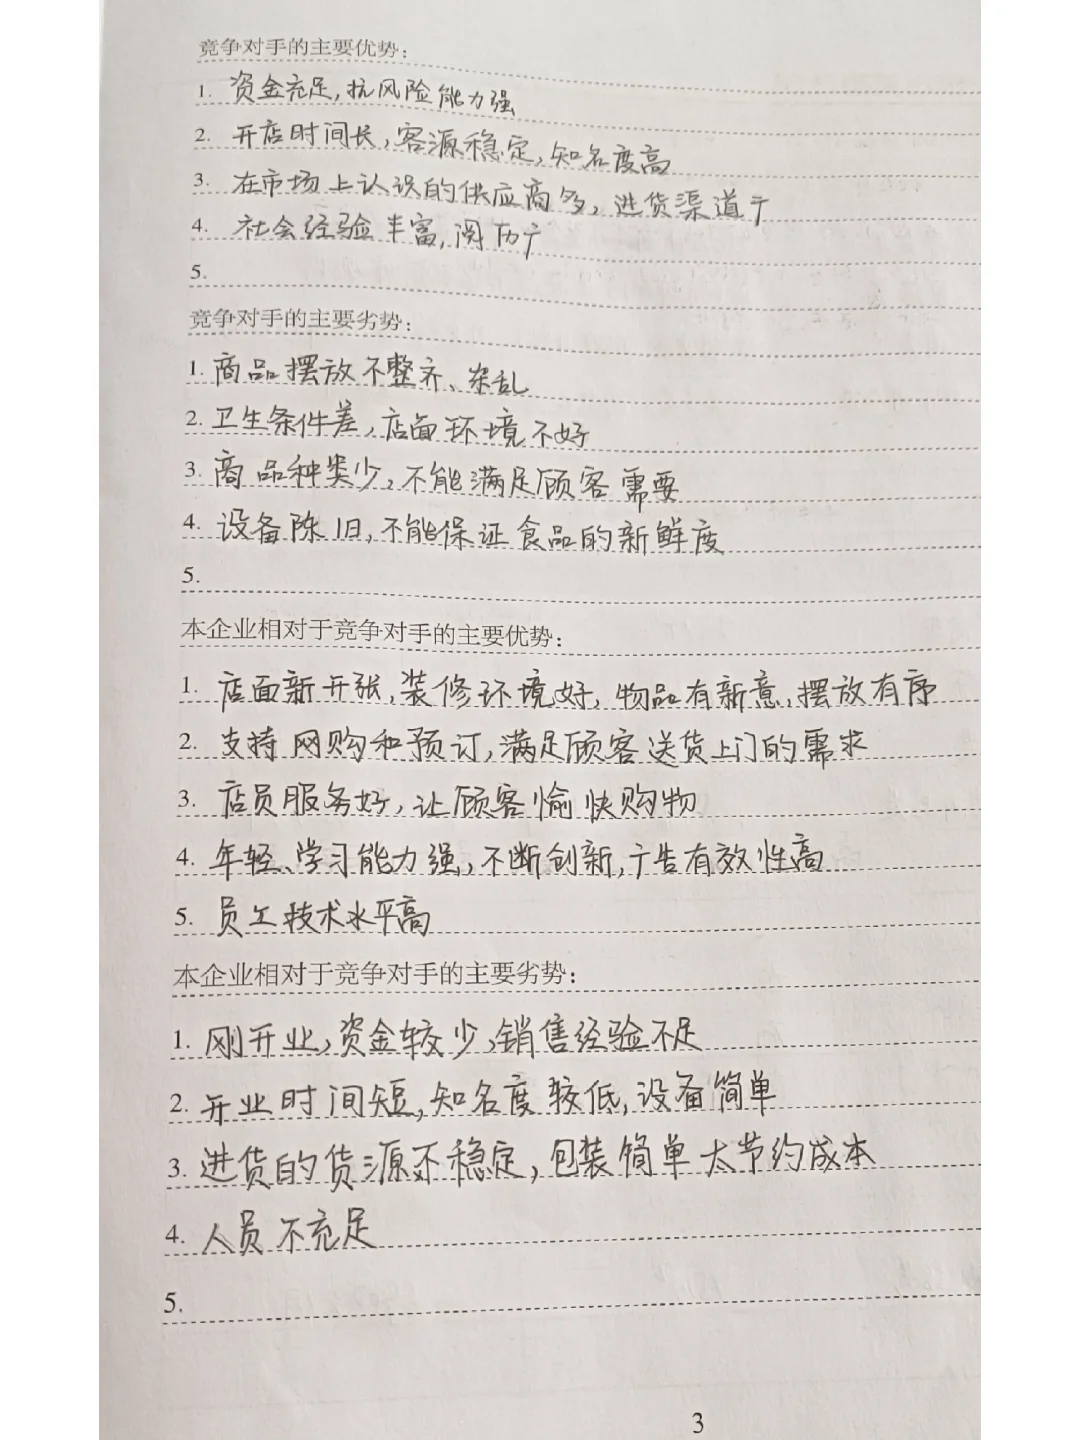 竞争对手的主要优势：
1. 资金充足，抗风险能力强
2. 开店时间长，客源稳定，知名度高
3. 在市场上认识的供应商多，进货渠道广
4. 社会经验丰富，阅历广
5.
竞争对手的主要劣势：
1. 商品摆放不整齐、杂乱
2. 卫生条件差，店面环境不好
3. 商品种类少，不能满足顾客需要
4. 设备陈旧，不能保证食品的新鲜度
5.
本企业相对于竞争对手的主要优势：
1. 店面新开张，装修环境好，物品有新意，摆放有序
2. 支持网购和预订，满足顾客送货上门的需求
3. 店员服务好，让顾客愉快购物
4. 年轻、学习能力强，不断创新，广告有效性高
5. 员工技术水平高
本企业相对于竞争对手的主要劣势：
1. 刚开业，资金较少，销售经验不足
2. 开业时间短，知名度较低，设备简单
3. 进货的货源不稳定，包装简单太节约成本
4. 人员不充足
5.
3